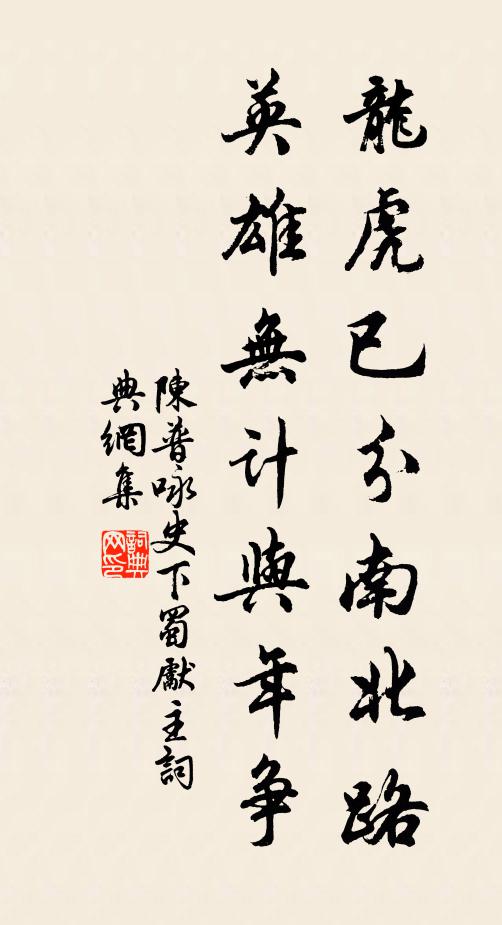 龍虎已分南北路
英雄無計與年爭
陳普咏史下蜀獻主詞
典網集
詞典网印